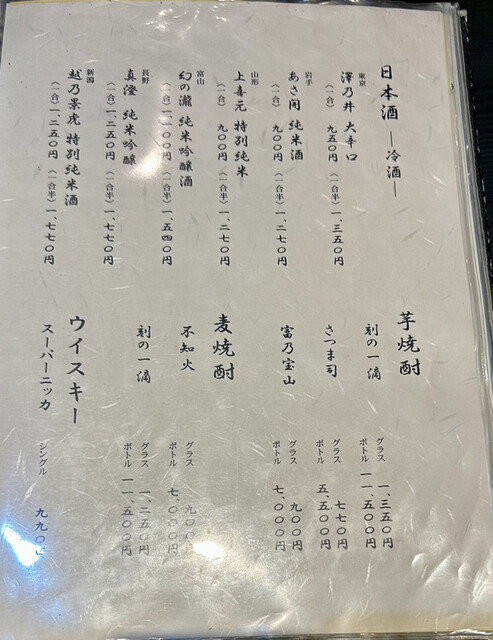 日本酒 ―冷酒―
東京
澤乃井 大辛口
〈一合〉 九五〇円 〈一合半〉 一、三五〇円
岩手
あさ開 純米酒
〈一合〉 九〇〇円 〈一合半〉 一、二七〇円
山形
上喜元 特別純米
〈一合〉 九〇〇円 〈一合半〉 一、二七〇円
富山
幻の瀧 純米吟醸酒
〈一合〉 一、一〇〇円 〈一合半〉 一、五四〇円
長野
真澄 純米吟醸
〈一合〉 一、二五〇円 〈一合半〉 一、七七〇円
新潟
越乃景虎 特別純米酒
〈一合〉 一、二五〇円 〈一合半〉 一、七七〇円
芋焼酎
刻の一滴
グラス 一、三五〇円
ボトル 一一、五〇〇円
さつま司
グラス 七七〇円
ボトル 五、五〇〇円
富乃宝山
グラス 九〇〇円
ボトル 七、〇〇〇円
麦焼酎
不知火
グラス 九〇〇円
ボトル 七、〇〇〇円
刻の一滴
グラス 一、二五〇円
ボトル 一一、五〇〇円
ウイスキー
スーパーニッカ
シングル 九九〇円